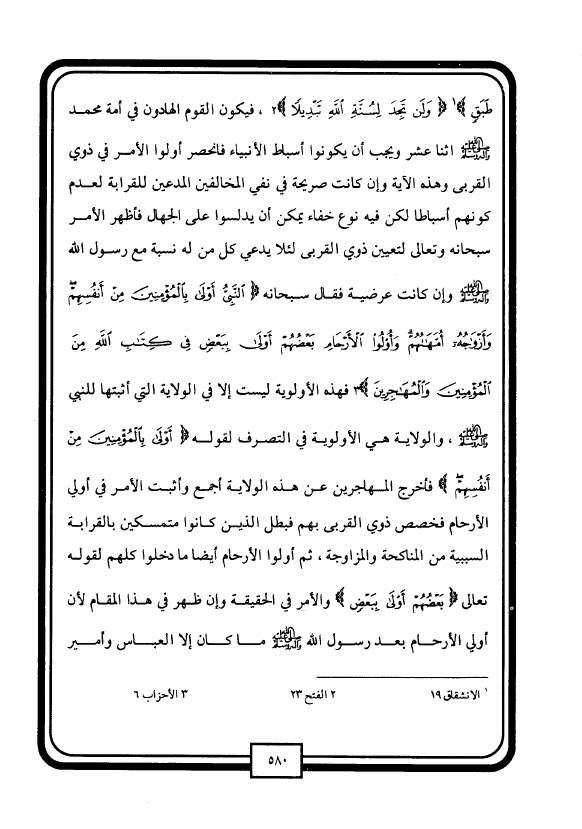 طَبَقٍ ﴾١ ﴿ وَلَن تَجِدَ لِسُنَّةِ اللَّهِ تَبْدِيلًا ﴾٢ ، فيكون القوم الهادون في أمة محمد
ﷺ اثنا عشر ويجب أن يكونوا أسباط الأنبياء فانحصر أولوا الأمر في ذوي
القربى وهذه الآية وإن كانت صريحة في نفي المخالفين المدعين للقرابة لعدم
كونهم أسباطا لكن فيه نوع خفاء يمكن أن يدلسوا على الجهال فأظهر الأمر
سبحانه وتعالى لتعيين ذوي القربى لئلا يدعي كل من له نسبة مع رسول الله
ﷺ وإن كانت عرضية فقال سبحانه ﴿ النَّبِيُّ أَوْلَى بِالْمُؤْمِنِينَ مِنْ أَنفُسِهِمْ
وَأَزْوَاجُهُ أُمَّهَاتُهُمْ وَأُوْلُوا الْأَرْحَامِ بَعْضُهُمْ أَوْلَى بِبَعْضٍ فِي كِتَابِ اللَّهِ مِنَ
الْمُؤْمِنِينَ وَالْمُهَاجِرِينَ ﴾٣ فهذه الأولوية ليست إلا في الولاية التي أثبتها للنبي
ﷺ ، والولاية هي الأولوية في التصرف لقوله ﴿ أَوْلَى بِالْمُؤْمِنِينَ مِنْ
أَنفُسِهِمْ ﴾ فأخرج المهاجرين عن هذه الولاية أجمع وأثبت الأمر في أولي
الأرحام فخصص ذوي القربى بهم فبطل الذين كانوا متمسكين بالقرابة
السببية من المناكحة والمزاوجة ، ثم أولوا الأرحام أيضا ما دخلوا كلهم لقوله
تعالى ﴿ بَعْضُهُمْ أَوْلَى بِبَعْضٍ ﴾ والأمر في الحقيقة وإن ظهر في هذا المقام لأن
أولي الأرحام بعد رسول الله ﷺ ما كان إلا العباس وأمير
١ الانشقاق ١٩ ٢ الفتح ٢٣ ٣ الأحزاب ٦
٥٨٠